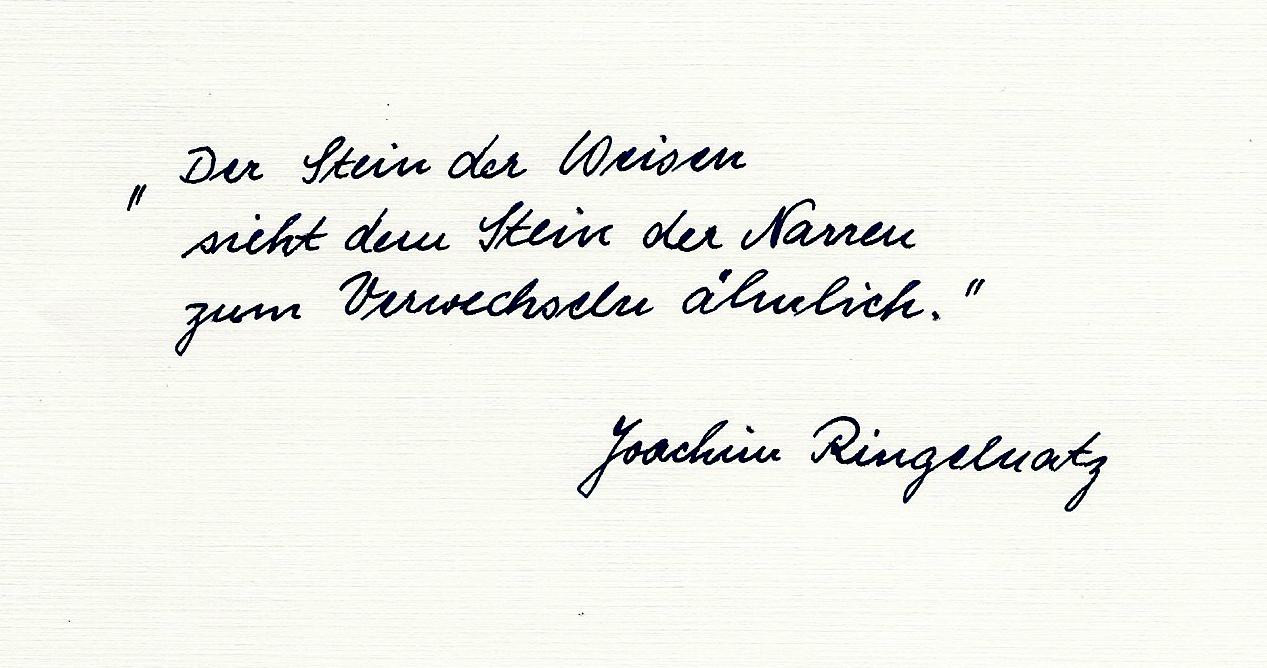 „Der Stein der Weisen
sieht dem Stein der Narren
zum Verwechseln ähnlich."
Joachim Ringelnatz